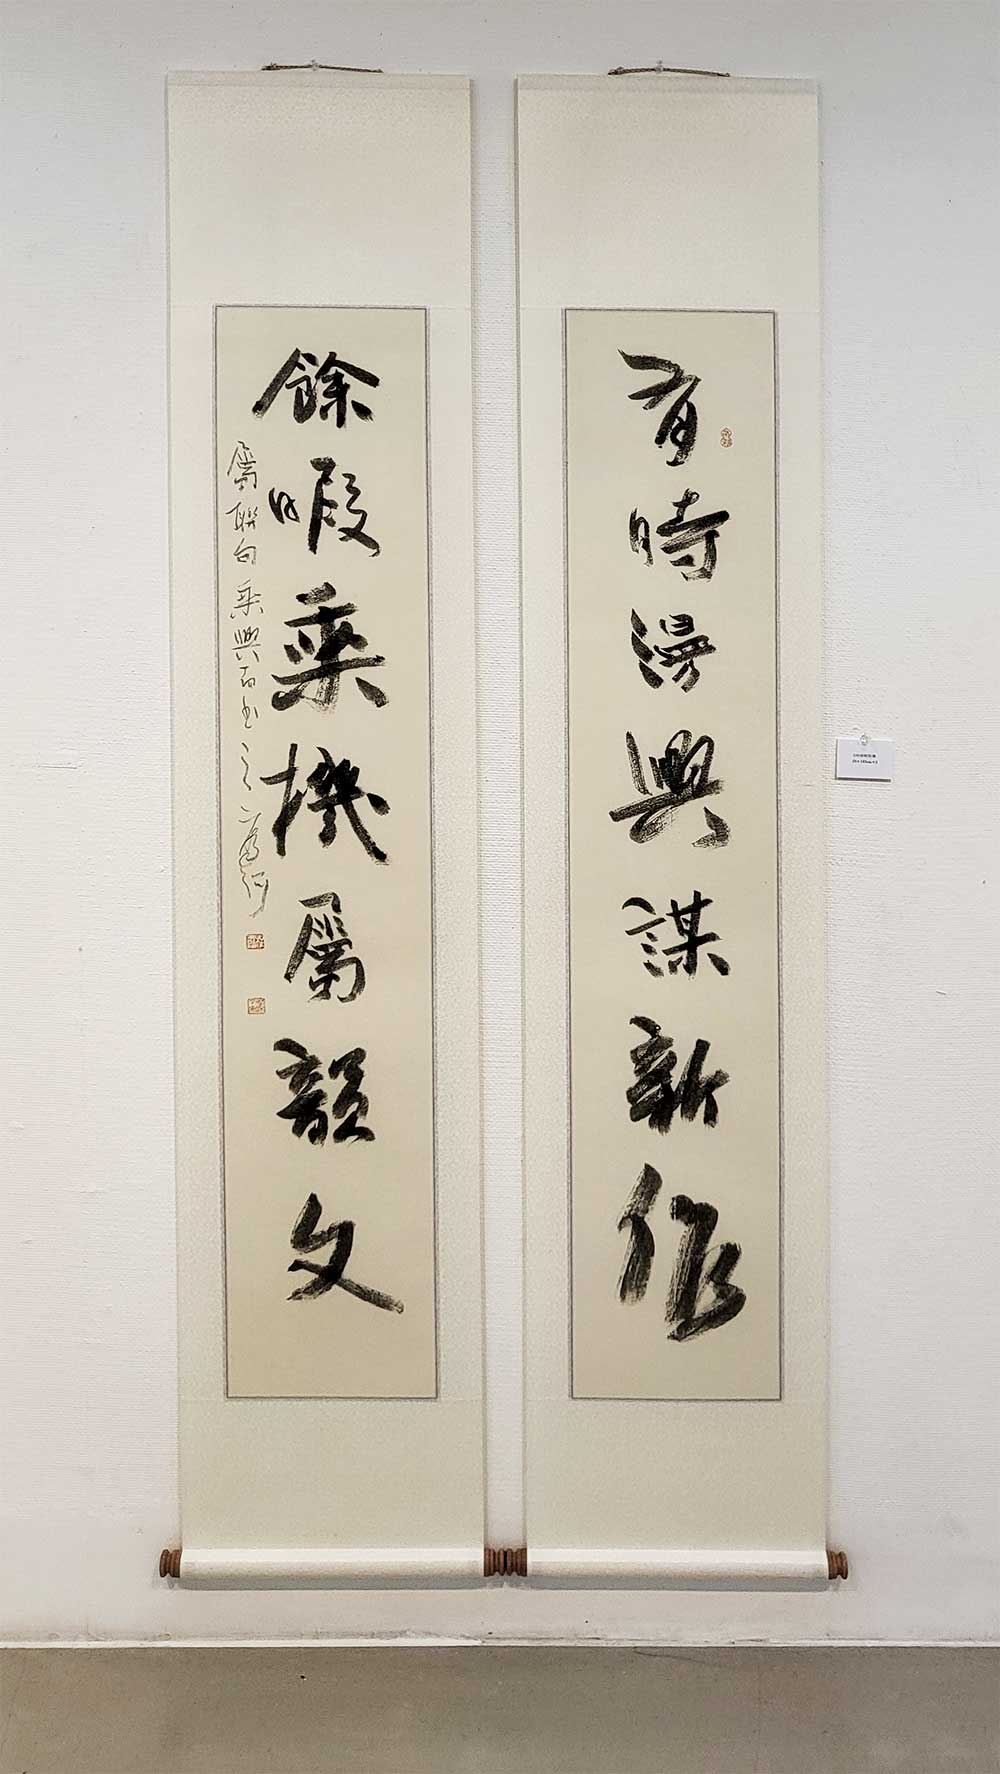 有時漫興謀新作
餘暇乘機屬韻文
屬聯句乘興而書之